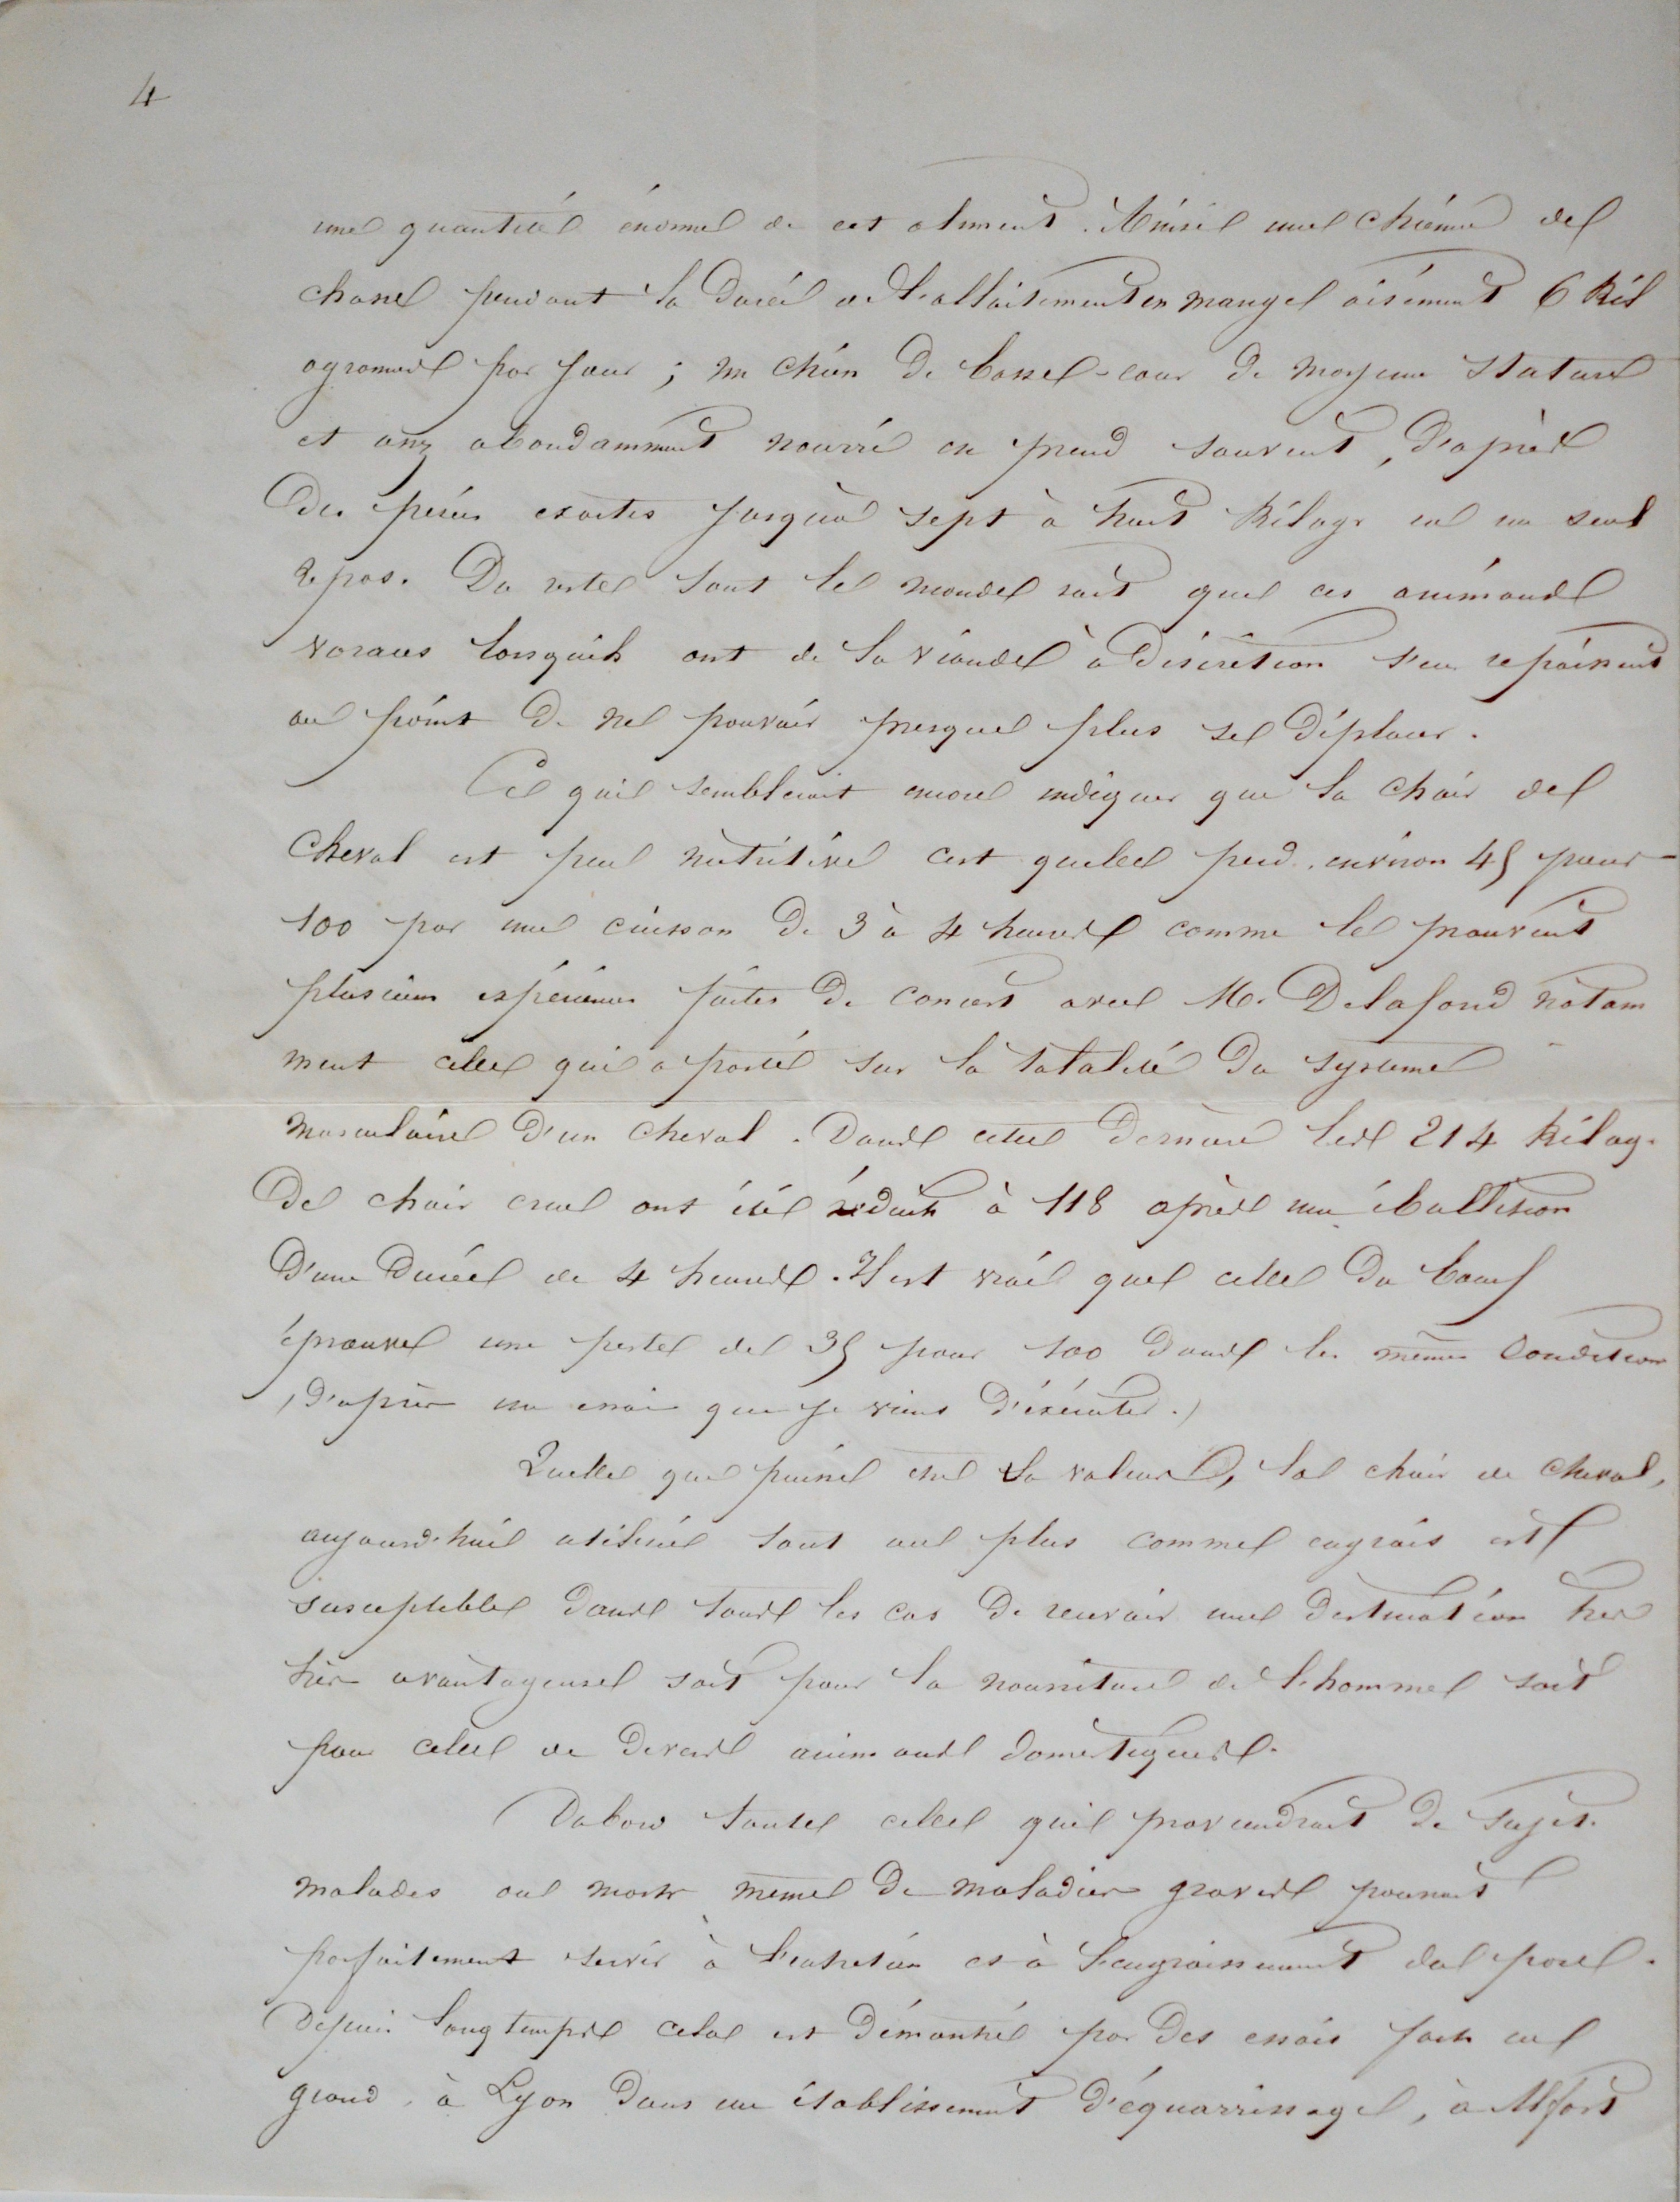 4
une quantité énorme de cet aliment. Ainsi une chienne de
chasse pendant la durée de l'allaitement en mange aisément 6 kil
ogrammes par jour ; un chien de basse-cour de moyenne stature
et assez abondamment nourri en prend souvent, d'après
des pesées exactes jusqu'à sept à huit kilogr en un seul
repas. Du reste tout le monde sait que ces animaux
voraces lorsqu'ils ont de la viande à discrétion s'en repaissent
au point de ne pouvoir presque plus se déplacer.
Ce qui semblerait encore indiquer que la chair de
cheval est peu nutritive c'est qu'elle perd environ 45 pour
100 par une cuisson de 3 à 4 heures comme le prouvent
plusieurs expériences faites de concert avec M. Delafond notam
ment celle qui a porté sur la totalité du système
musculaire d'un cheval. Dans cette dernière les 214 kilog.
de chair crue ont été réduits à 118 après une ébullition
d'une durée de 4 heures. Il est vrai que celle du boeuf
éprouve une perte de 35 pour 100 dans les mêmes conditions
(d'après un essai que je viens d'exécuter.)
Quelle que puisse être la valeur, la chair de cheval,
aujourd'hui utilisée tout au plus comme engrais est
susceptible dans tous les cas de recevoir une destination très
très avantageuse soit pour la nourriture de l'homme soit
pour celle de divers animaux domestiques.
Dabord toute celle qui proviendrait de sujets
malades ou morts même de maladies graves pourrait
parfaitement servir à l'entretien et à l'engraissement du porc.
Depuis longtemps cela est démontré par des essais faits en
grand, à Lyon dans un établissement d'équarrissage, à Alfort